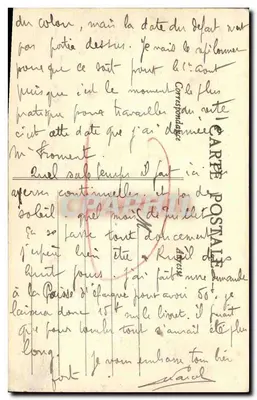 du colon, mais la date du départ n'est
pas portée dessus. Je vais le
pour que ce soit pour le 1er août
puisque c'est le moment le plus
pratique pour travailler, du reste
c'est cette date que j'ai donnée à
Mr Froment.
Quel sale temps il fait ici
averses continuelles et pas de
soleil, quel mois de juillet
Ça se passe tout doucement
j'espère bien être à Rueil dans
huit jours. J'ai fait une demande
à la Caisse d'Epargne pour avoir 50f, je
laisserai donc 15f sur le livret. Il
que pour toucher tout c'aurait été plus
long.
Je vous embrasse tous bien
fort.
CARTE POSTALE
Correspondance
Adresse
M